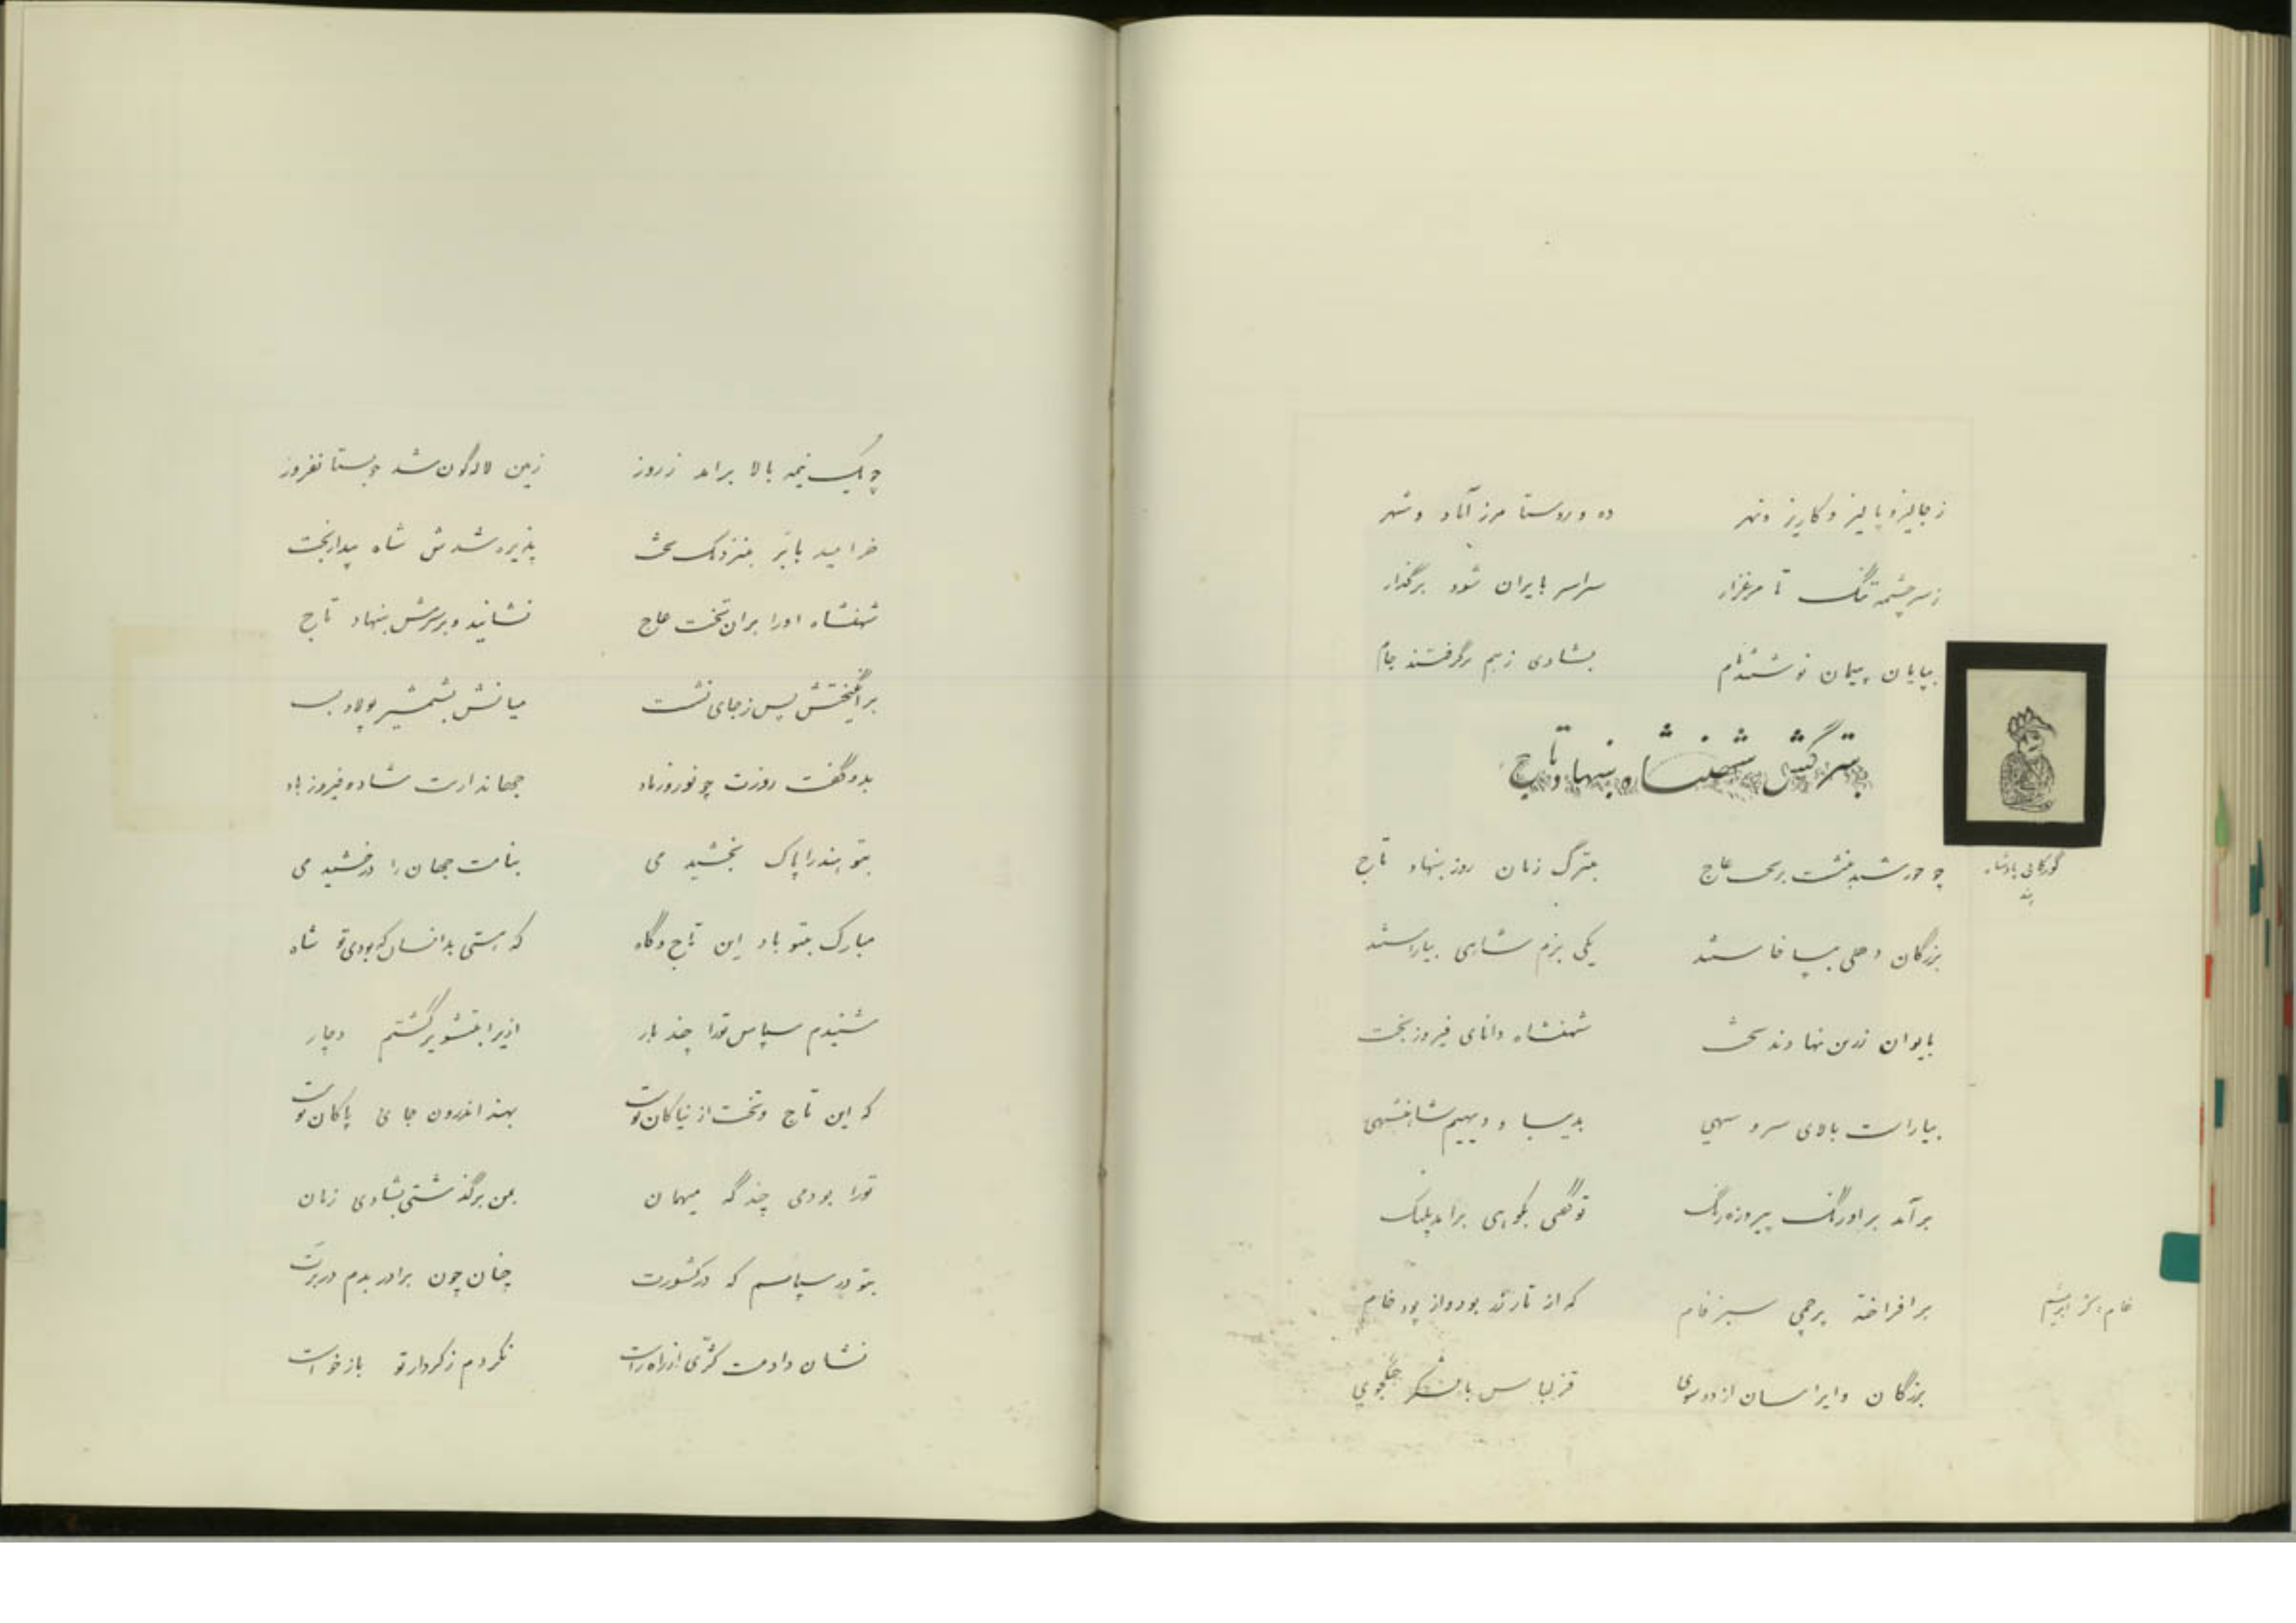 ز جالیز و پالیز و کاریز و نهر    ده و روستا مرز آباد و شهر
ز سرچشمه تنگ تا مرغزار    سراسر بایران شود برگذار
بپایان پیمان نوشتند نام    بشادی ز هم برگرفتند جام
بترگش شهنشاه بنهاد تاج
گورکانی پادشاه
هند
چو خورشید بنشست بر تخت عاج    بترگ زمان روز بنهاد تاج
بزرگان دهلی بپا خاستند    یکی بزم شاهی بیاراستند
بایوان زرین نهادند تخت    شهنشاه دانای فیروز بخت
بیاراست بالای سرو سهی    بدیبا و دیهیم شاهنشهی
برآمد بر اورنگ پیروزه رنگ    تو گفتی بکوهی برآمد پلنگ
برافراخته پرچمی سبز فام    که از تار زر بود و از پود خام
خام: نخ ابریشم
بزرگان و ایراسان از دو سوی    قزلباس با لشکر جنگجوی
چو یک نیمه بالا برامد ز روز    زمین لاله گون شد چو بستانفروز
خرامید بابر بنزدیک تخت    پذیره شدش شاه بیدار بخت
شهنشاه اورا بران تخت عاج    نشانید و بر سرش بنهاد تاج
برانگیختش پس ز جای نشست    میانش بشمشیر پولاد بست
بدو گفت روزت چو نوروز باد    جهاندارت شاد و فیروز باد
بتو هند را پاک بخشید می    بنامت جهان را درخشید می
مبارک بتو باد این تاج و گاه    که هستی بدانسان که بودی تو شاه
شنیدم سپاس تورا چند بار    ازیرا بتشویر گشتم دچار
که این تاج و تخت از نیاکان توست    بهند اندرون جای پاکان توست
تورا بودمی چند گه میهمان    بمن برگذشتی بشادی زمان
بتو در سپاسم که در کشورت    چنان چون برادر بدم در برت
نشان دادمت کژی از راه راست    نکردم ز کردار تو بازخواست